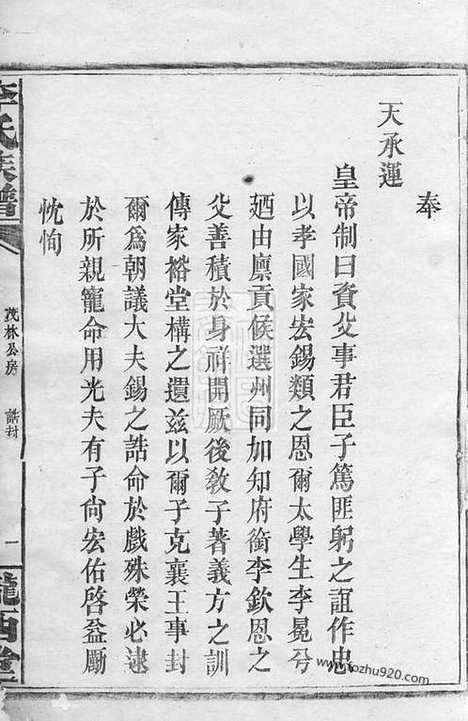 奉
天承運
皇帝制曰資父事君臣子篤匪躬之誼作忠
以孝國家宏錫類之恩爾太學生李冕兮
廼由廩貢候選州同加知府銜李欽恩之
父善積於身祥開厥後敎子著義方之訓
傳家裕堂構之遺兹以爾子克襄王事封
爾爲朝議大夫錫之誥命於戲殊榮必逮
於所親寵命用光夫有子尙宏佑啓益勵
忱恂
李氏族譜
茂林公房
誥封
一
隴西堂
www.fozhu920.com